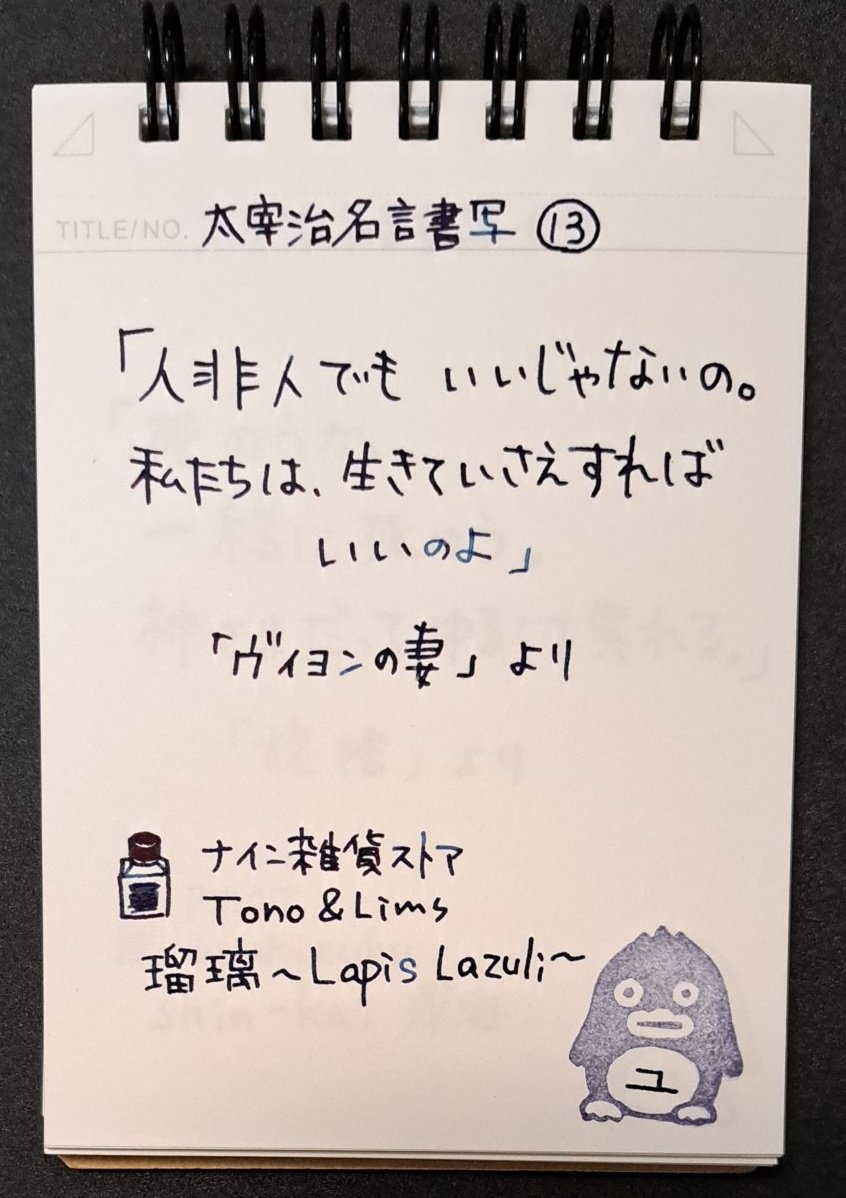 TITLE/NO. 太宰治名言書写 ⑬
「人非人でも いいじゃないの。
私たちは、生きていさえすれば
いいのよ」
「ヴィヨンの妻」より
ナイン雑貨ストア
Tono & Lims
瑠璃〜Lapis Lazuli〜
ユ